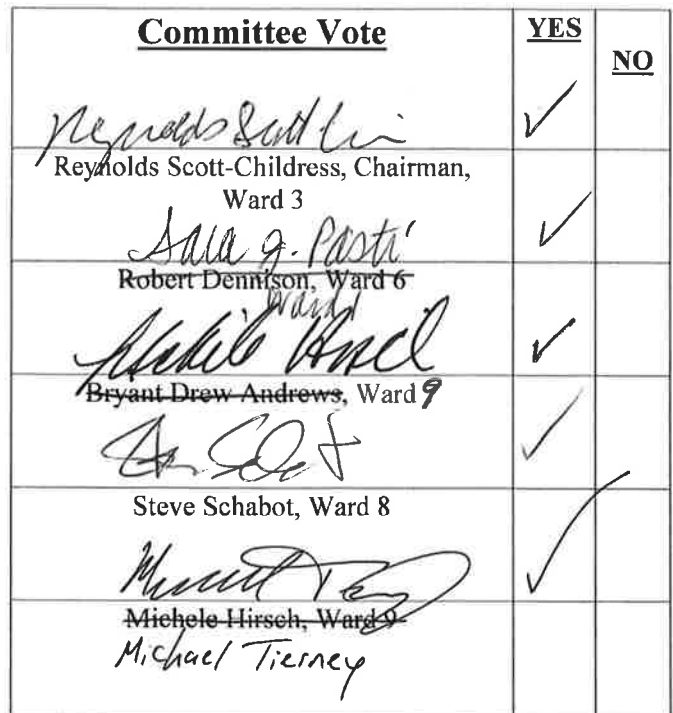 Committee Vote
YES
NO
Reynolds Scott
✓
Reynolds Scott-Childress, Chairman,
Ward 3
Sara J. Pasti
✓
Robert Dennison, Ward 6
Ward 1
✓
Bryant Drew Andrews, Ward 9
✓
Steve Schabot, Ward 8
✓
Michele Hirsch, Ward 9
Michael Tierney